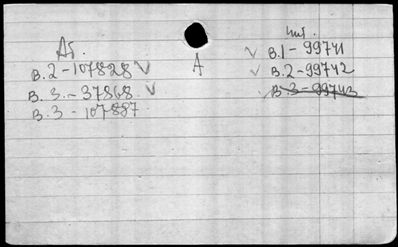 Аб.
в.2-107828 ✓
в.3.-37868 ✓
в.3-107887
А
чит.
✓ в.1-99741
✓ в.2-99742
в.3-99743